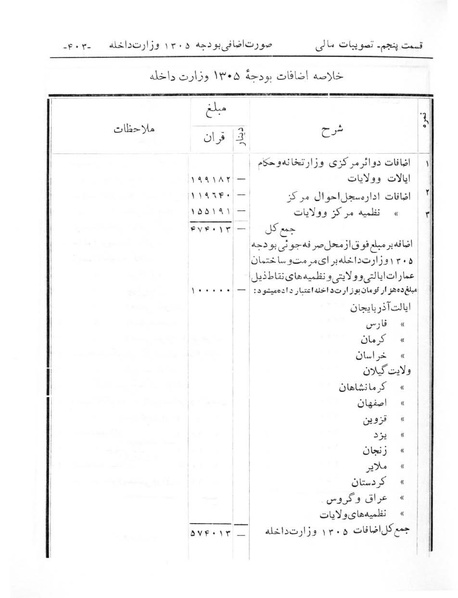 قسمت پنجم- تصویبات مالی صورت اضافی بودجه ۱۳۰۵ وزارت داخله -۴۰۳-
خلاصه اضافات بودجهٔ ۱۳۰۵ وزارت داخله
نمره شرح مبلغ ملاحظات
دینار قران
۱ اضافات دوائر مرکزی وزارتخانه و حکام
ایالات وولایات — ۱۹۹۱۸۲
۲ اضافات اداره سجل احوال مرکز — ۱۱۹۶۴۰
۳ » نظمیه مرکز وولایات — ۱۵۵۱۹۱
جمع کل — ۴۷۴۰۱۳
اضافه بر مبلغ فوق از محل صرفه جوئی بودجه
۱۳۰۵ وزارت داخله برای مرمت و ساختمان
عمارات ایالتی و ولایتی و نظمیه های نقاط ذیل
مبلغ ده هزار تومان بوزارت داخله اعتبار داده میشود: — ۱۰۰۰۰۰
ایالت آذربایجان
» فارس
» کرمان
» خراسان
ولایت گیلان
» کرمانشاهان
» اصفهان
» قزوین
» یزد
» زنجان
» ملایر
» کردستان
» عراق و گروس
» نظمیه های ولایات
جمع کل اضافات ۱۳۰۵ وزارت داخله — ۵۷۴۰۱۳